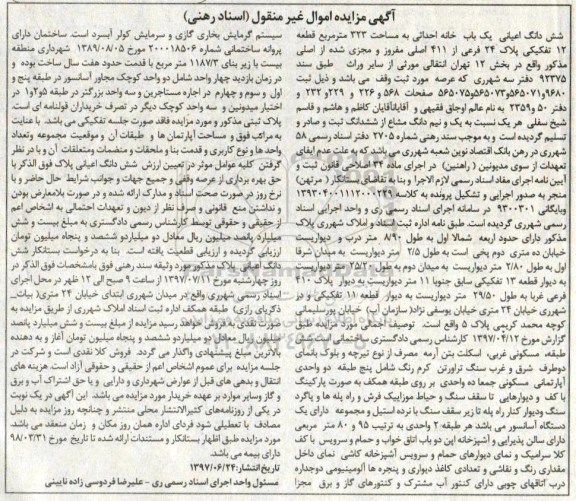 آگهی مزایده اموال غیر منقول (اسناد رهنی)
شش دانگ اعیانی یک باب خانه احداثی به مساحت ۳۲۳ مترمربع قطعه
۱۲ تفکیکی پلاک ۲۴ فرعی از ۴۱۱ اصلی مفروز و مجزی شده از اصلی
مذکور واقع در بخش ۱۲ تهران انتقالی مورثی از سایر وراث طبق سند
۹۲۳۷۵ دفتر سه شهرری که عرصه مورد ثبت وقف می باشد و ذیل ثبت
صفحات ۵۶۸ و ۲۲۶ و ۲۲۹ و ۲۳۲ و
دفتر ۵۰ و ۲۳۵۹ به نام عالم اوجاق فقیهی و آقایان کاظم و هاشم و قاسم
شیخ سفلی هر یک نسبت به یک و نیم دانگ مشاع از ششدانگ ثبت و صادر و
تسلیم گردیده است و به موجب سند رهنی شماره ۲۷۰۵ دفتر اسناد رسمی ۵۸
شهرری در رهن بانک اقتصاد نوین شعبه شهرری می باشد که به علت عدم ایفای
تعهدات از سوی مدیونین (راهنین) در اجرای ماده ۳۴ اصلاحی قانون ثبت و
آیین نامه اجرای مفاد اسناد رسمی لازم الاجرا و بنا به تقاضای بستانکار (مرتهن)
منجر به صدور اجرایی و تشکیل پرونده به کلاسه
وبایگانی ۹۳۰۰۳۰۱ در سامانه اجرای اسناد رسمی ری و واحد اجرایی اسناد
رسمی شهرری گردیده است. طبق نامه اداره ثبت اسناد و املاک شهرری پلاک
مذکور دارای حدود اربعه شمالا اول به طول ۸/۹۰ متر درب و دیواریست
خیابان ده متری دوم پخی است به طول ۲/۵ متر دیواریست به میدان شرقا
اول به طول ۲/۸۰ متر دیواریست به میدان دوم به طول ۲۵/۲۰ متر دیواریست
به دیوار قطعه ۱۳ تفکیکی سابق جنوبا ۱۱ متر دیواریست به دیوار پلاک ۴۱۰
فرعی غربا به طول ۲۹/۵۰ متر دیواریست به دیوار قطعه ۱۱ تفکیکی و در
شهرری خیابان ۲۴ متری خیابان یوسفی نژاد( سازمان آب) خیابان پورسلیمانی
کوچه محمد کریمی پلاک ۵ واقع است. توصیف اجمالی مورد مزایده طبق
گزارش مورخ ۱۳۹۷/۰۴/۱۲ کارشناس رسمی دادگستری ساختمانی است ۵
طبقه، مسکونی غربی، اسکلت بتن آرمه مصرف از نوع تیرچه و بلوک بانمای
دوطرف شرق و غرب سنگ تراورتن کرم رنگ شامل پنج طبقه دو واحدی
آپارتمانی مسکونی جمعا ده واحدی بر روی طبقه همکف به صورت پارکینگ
با کف و دیوارهایی تا سقف سنگ و حیاط موزاییک فرش و راه پله ها و پاگرد
سنگ ودیوار کنار راه پله تا زیر سقف سنگ با نرده استیل و مجموعه دارای یک
دستگاه آسانسور می باشد هر طبقه ۲ واحدی به ترتیب ۹۵ و ۸۰ متر مربعی
دارای سالن پذیرایی و آشپزخانه این دو باب اتاق خواب و حمام و سرویس با کف
کلا سرامیک و نمای دیوارهای حمام و سرویس آشپزخانه کاشی نمای داخل
مقداری رنگ و نقاشی و تعدادی کاغذ دیواری و پنجره ها آلومینیومی دوجداره
درب اتاقهای چوبی دارای کنتور آب مشترک و کنتورهای گاز و برق مجزا
سیستم گرمایش بخاری گازی و سرمایش کولر آبسرد است. ساختمان دارای
پروانه ساختمانی شماره ۲۰۰۰۱۸۵۰۶ مورخ ۱۳۸۹/۰۸/۰۵ شهرداری منطقه
بیست با زیر بنای ۱۱۸۷/۳ متر مربع با قدمت حدود هفت سال ساخت بوده و
در زمان بازدید چهار واحد شامل دو واحد کوچک مجاور آسانسور در طبقه پنج و
اول و سوم و چهارم در اجاره مستاجرین و سه واحد بزرگتر در طبقه ۵و۲و۱ در
اختیار میدونین و سه واحد کوچک دیگر در تصرف خریداران قولنامه ای است.
پلاک ثبتی مذکور و مورد مزایده فاقد صورت جلسه تفکیکی می باشد. با عنایت
به مراتب فوق و مساحت آپارتمان ها و طبقات آن و موقعیت مجموعه وتعداد
واحد ها و نوع کاربری و قدمت بنا و ملحقات و منضمات ومتعلقات آن و با در نظر
گرفتن کلیه عوامل موثر در تعیین ارزش شش دانگ اعیانی پلاک فوق الذکر با
حق بهره برداری از عرصه وقفی و جمیع جهات و جوانب شرایط حال حاضر و با
نرخ روز در صورت صحت اسناد و مدارک ارائه شده و در صورت بلامعارض بودن
و نداشتن منع قانونی و صرف نظر از دیون و تعهدات احتمالی به اشخاص اعم
از حقیقی و حقوقی توسط کارشناس رسمی دادگستری به مبلغ بیست و شش
میلیارد پانصد میلیون ریال معادل دو میلیاردو ششصد و پنجاه میلیون تومان
ارزیابی گردیده و ارزیابی قطعیت یافته است. بنا به درخواست بستانکار شش
دانگ اعیانی پلاک مذکور مورد وثیقه سند رهنی فوق بامشخصات فوق الذکر در
روز چهارشنبه مورخ ۱۳۹۷/۰۷/۱۱ از ساعت ۹ صبح الی ۱۲ ظهر در محل اجرای
اسناد رسمی شهرری واقع در میدان شهرری ابتدای خیابان ۲۴ متری( بیات_
ذکریای رازی) طبقه همکف اداره ثبت اسناد املاک شهرری از طریق مزایده به
صورت نقدی به فروش خواهد رسید مزایده از مبلغ بیست و شش میلیارد پانصد
میلیون ریال معادل دو میلیاردو ششصد و پنجاه میلیون تومان آغاز و به دهنده
بالاترین مبلغ پیشنهادی واگذار می گردد فروش کلا نقدی است و شرکت در
جلسه مزایده برای عموم اشخاص اعم از حقیقی و حقوقی آزاد است. هزینه های
انتقال و بدهی های قبل از عوارض شهرداری و دارایی و یا حق اشتراک آب و برق
و گاز وسایر موارد بر عهده خریدار مورد مزایده می باشد. این آگهی در یک نوبت
در یکی از روزنامه‌های کثیرالانتشار محلی منتشر و چنانچه روز مزایده به دلیل
مصادف با تعطیلی شود فردای اداره همان روز مکان و زمان منعقد می باشد.
مورد مزایده طبق اظهار بستانکار و مستندات ارائه شده تا تاریخ مورخ ۹۸/۰۳/۳۱
دارای بیمه می باشد.
تاریخ انتشار: ۱۳۹۷/۰۶/۲۴
مسئول واحد اجرای اسناد رسمی ری - علیرضا فردوسی زاده نایینی